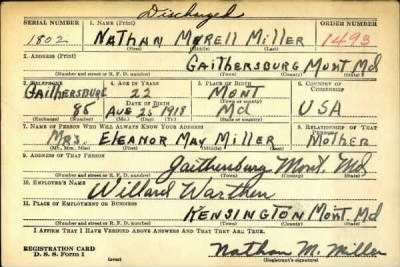 Discharged
SERIAL NUMBER 1. NAME (Print) ORDER NUMBER
1802 NATHAN MORELL MILLER 1493
(First) (Middle) (Last)
2. ADDRESS (Print)
GAITHERSBURG MONT Md
(Number and street or R. F. D. number) (Town) (County) (State)
3. TELEPHONE 4. AGE IN YEARS 5. PLACE OF BIRTH 6. COUNTRY OF CITIZENSHIP
GAITHERSBURG 22 MONT
DATE OF BIRTH (Town or county)
85 AUG 25 1918 Md USA
(Exchange) (Number) (Mo.) (Day) (Yr.) (State or country)
7. NAME OF PERSON WHO WILL ALWAYS KNOW YOUR ADDRESS 8. RELATIONSHIP OF THAT PERSON
MRS. ELEANOR MAY MILLER MOTHER
(Mr., Mrs., Miss) (First) (Middle) (Last)
9. ADDRESS OF THAT PERSON
Gaithersburg Mont. Md
(Number and street or R. F. D. number) (Town) (County) (State)
10. EMPLOYER'S NAME
Willard Warthen
11. PLACE OF EMPLOYMENT OR BUSINESS
KENSINGTON MONT. Md
(Number and street or R. F. D. number) (Town) (County) (State)
I AFFIRM THAT I HAVE VERIFIED ABOVE ANSWERS AND THAT THEY ARE TRUE.
REGISTRATION CARD
D. S. S. Form 1 (over) Nathan M. Miller
(Registrant's signature)